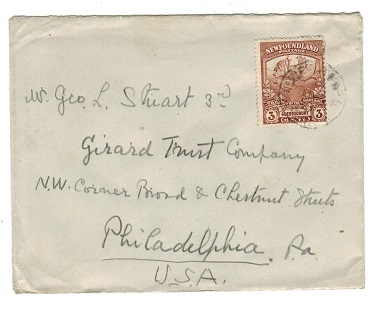 NEWFOUNDLAND
3 3
CENTS
Mr. Geo. L. Stuart 3rd
Girard Trust Company
N.W. Corner Broad & Chestnut Streets
Philadelphia, Pa.
U.S.A.